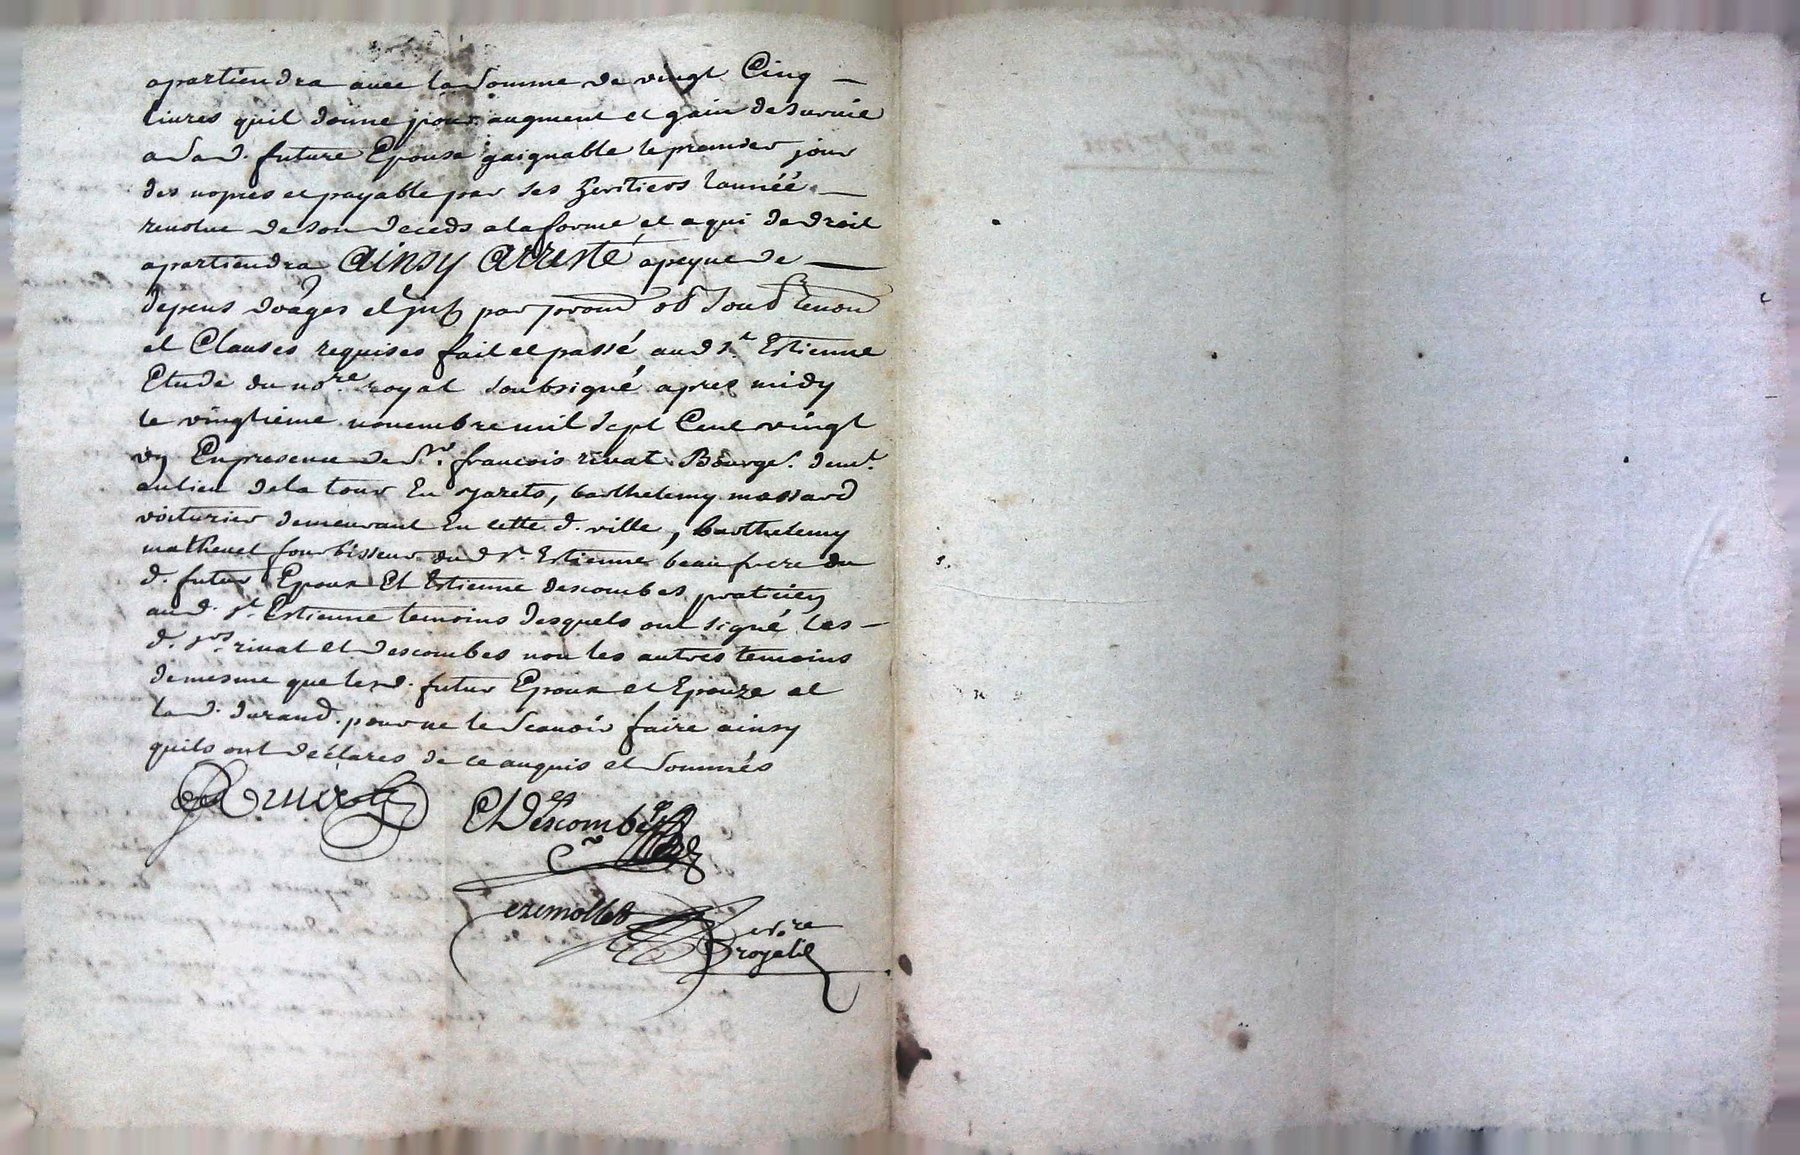 apartiendra avec la somme de vingt Cinq
livres quil donne pour augment et gain desurvie
a sa d. future Epouse gaignable le premier jour
des nopces et payable par ses heritiers lannéé
revolue deson deceds alaforme et a qui dedroit
apartiendra Ainsy Arresté apeyne de
depens domages et
et Clauses requises fait et passé aud St Estienne
Etude du nore royal soubsigné apres midy
le vingtieme novembre mil sept Cent vingt
un Enpresence de Sr. francois rivat Bourgs. demt.
aulieu dela tour En Jarets, barthelemy massard
voiturier demeurant En cette d. ville, barthelemy
mathevet fourbisseur dud St. Estienne beaufrere du
d. futur Epoux Et Estienne descombes praticien
aud. St. Estienne temoins desquels ont signé les
d. srs. rivat et descombes non les autres temoins
demesme que lesd. futur Epoux et Epouze et
lad. durand. pour ne le scavoir faire ainsy
quils ont declares de ce anquis et sommés
Rivat
Et Descombes
nore
royal